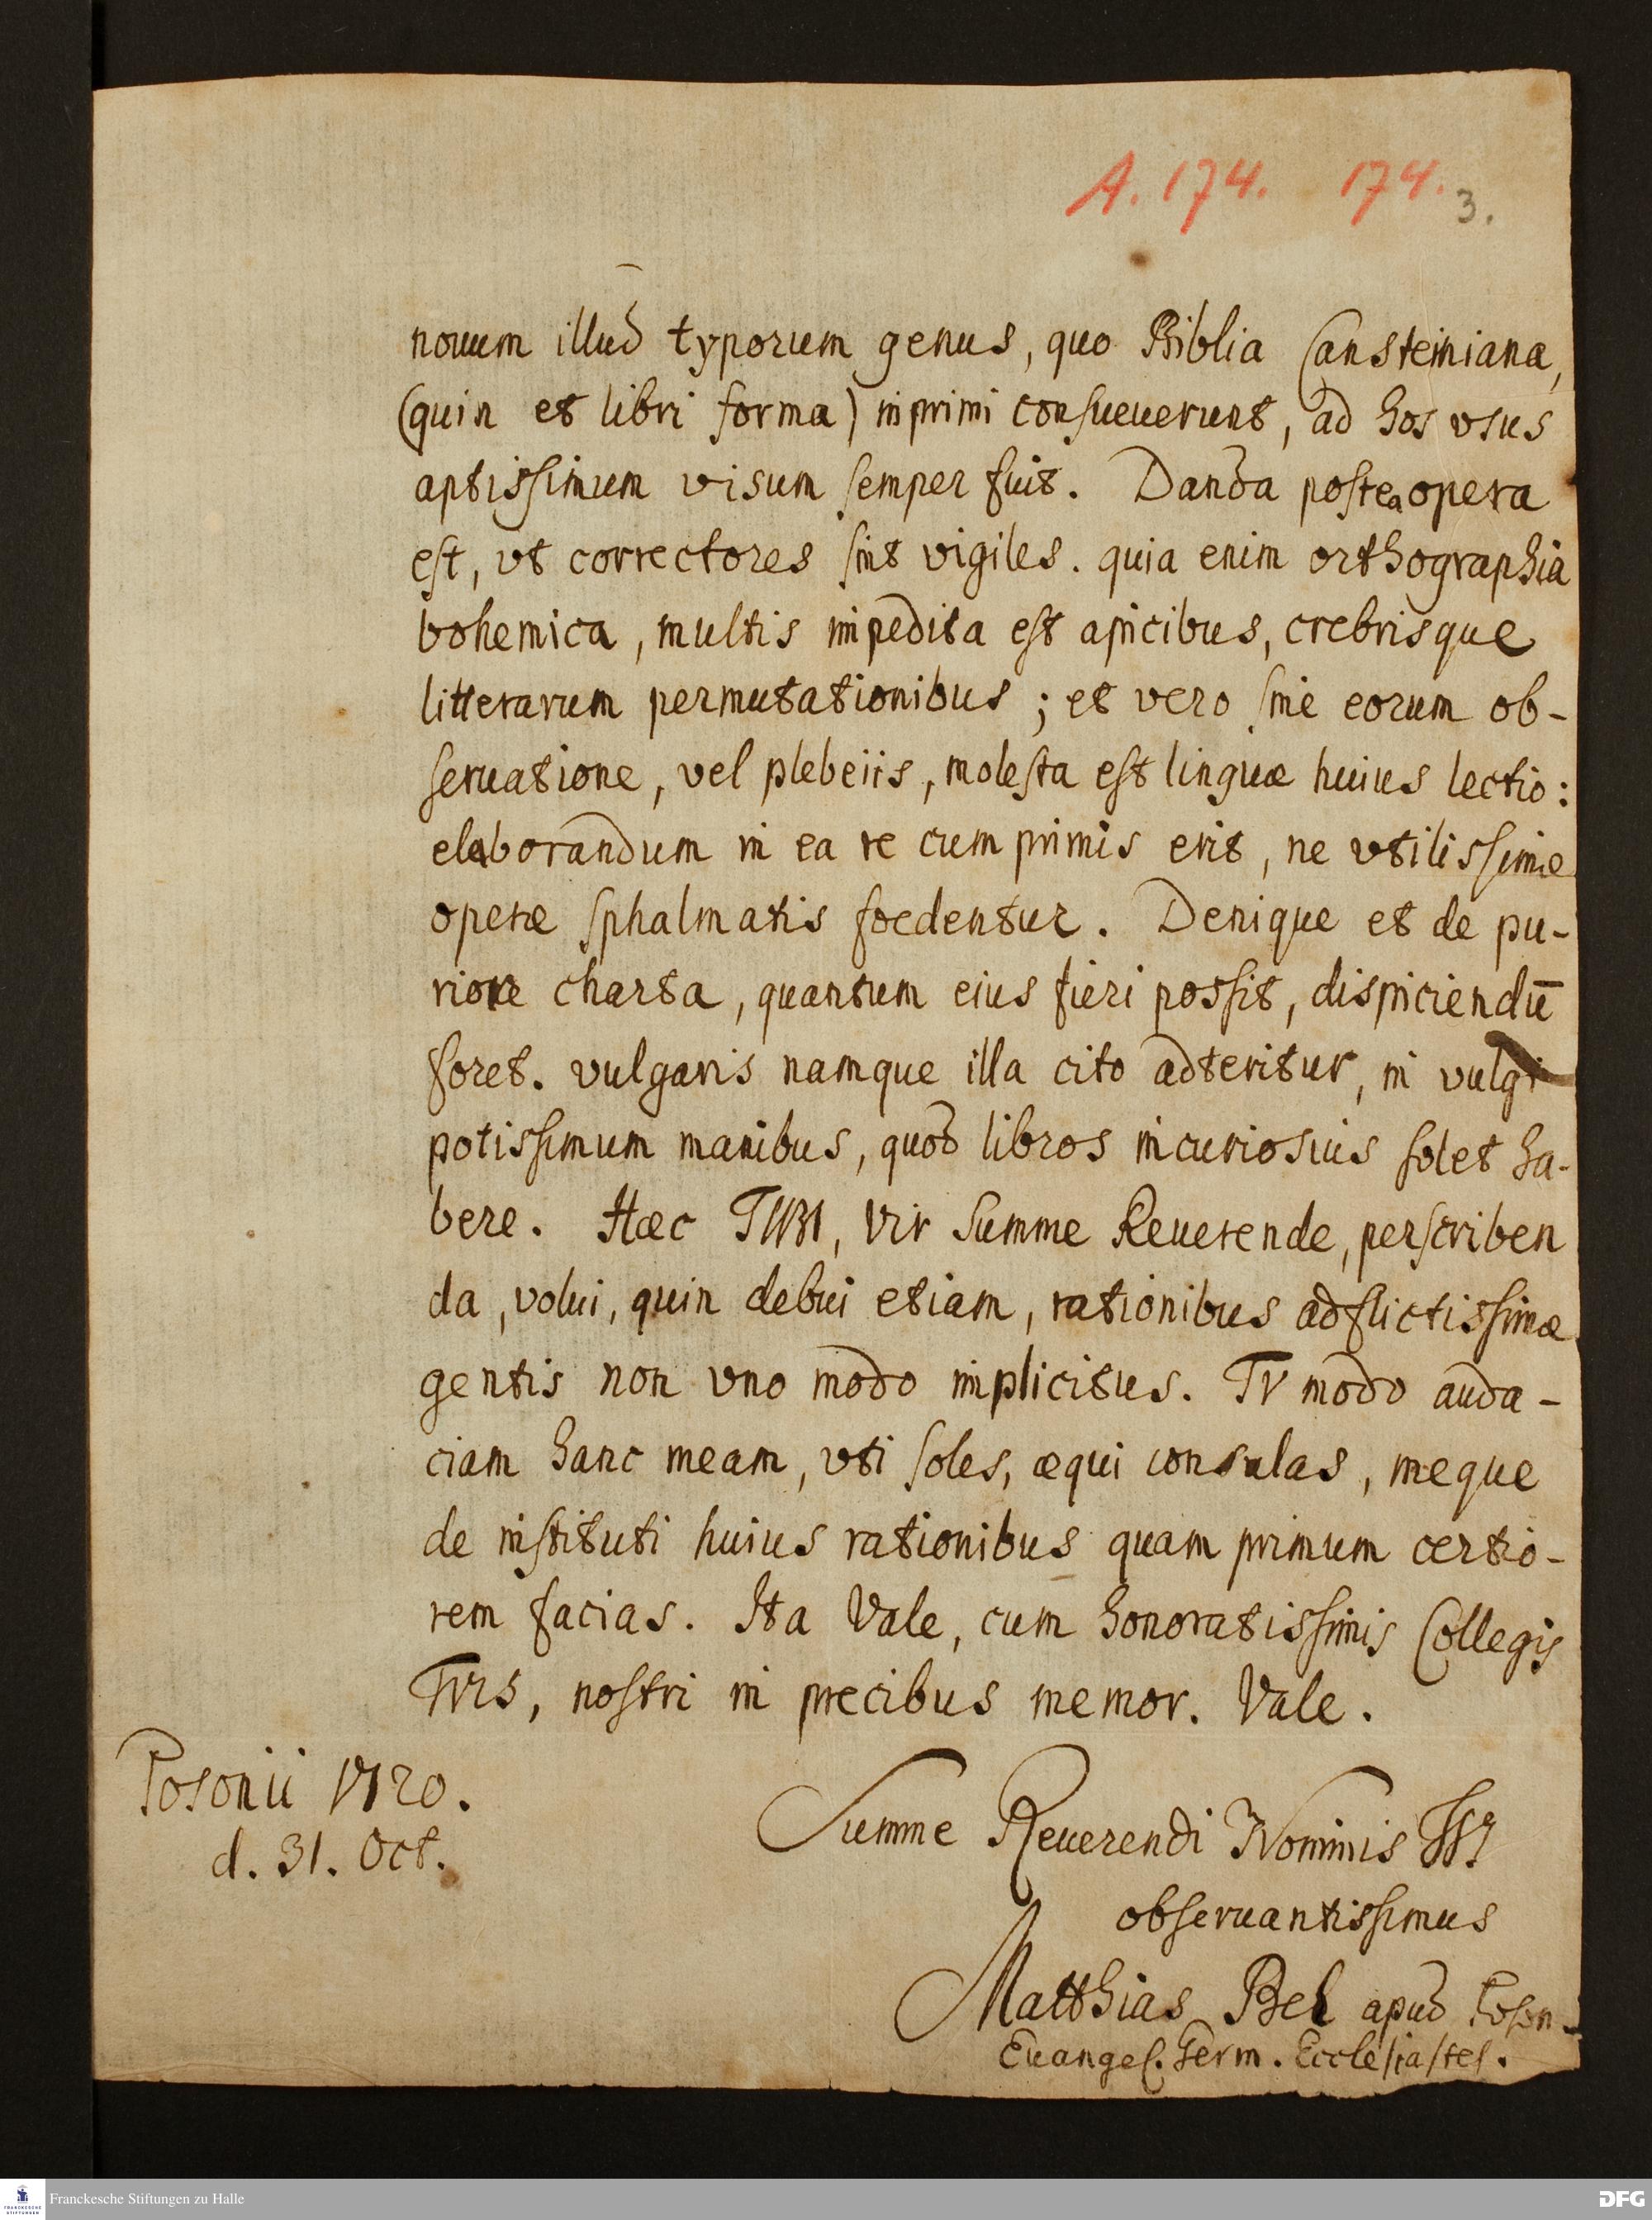 A. 174. 174. 3.
nouum illud typorum genus, quo Biblia Cansteiniana,
(quin et libri forma) inprimi consueuerunt, ad hos vsus
aptissimum visum semper fuit. Danda postea opera
est, vt correctores sint vigiles. quia enim orthographia
bohemica, multis impedita est apicibus, crebrisque
litterarum permutationibus; et vero sine eorum ob-
seruatione, vel plebeiis, molesta est linguæ huius lectio:
elaborandum in ea re cum primis erit, ne vtilissimæ
operæ sphalmatis foedentur. Denique et de pu-
riore charta, quantum eius fieri possit, dispiciendū
foret. vulgaris namque illa cito adteritur, in vulgi
potissimum manibus, quod libros incuriosius solet ha-
bere. Hæc TIBI, Vir Summe Reuerende, perscriben
da, volui, quin debui etiam, rationibus adflictissimæ
gentis non vno modo implicitus. TV modo auda-
ciam hanc meam, vti soles, æqui consulas, meque
de instituti huius rationibus quam primum certio-
rem facias. Ita Vale, cum honoratissimis Collegis
TVIS, nostri in precibus memor. Vale.
Posonii 1720.
d. 31. Oct.
Summe Reuerendi Nominis TVI
obseruantissimus
Matthias Bel apud Poson.
Euangel. Germ. Ecclesiastes.
Franckesche Stiftungen zu Halle
DFG